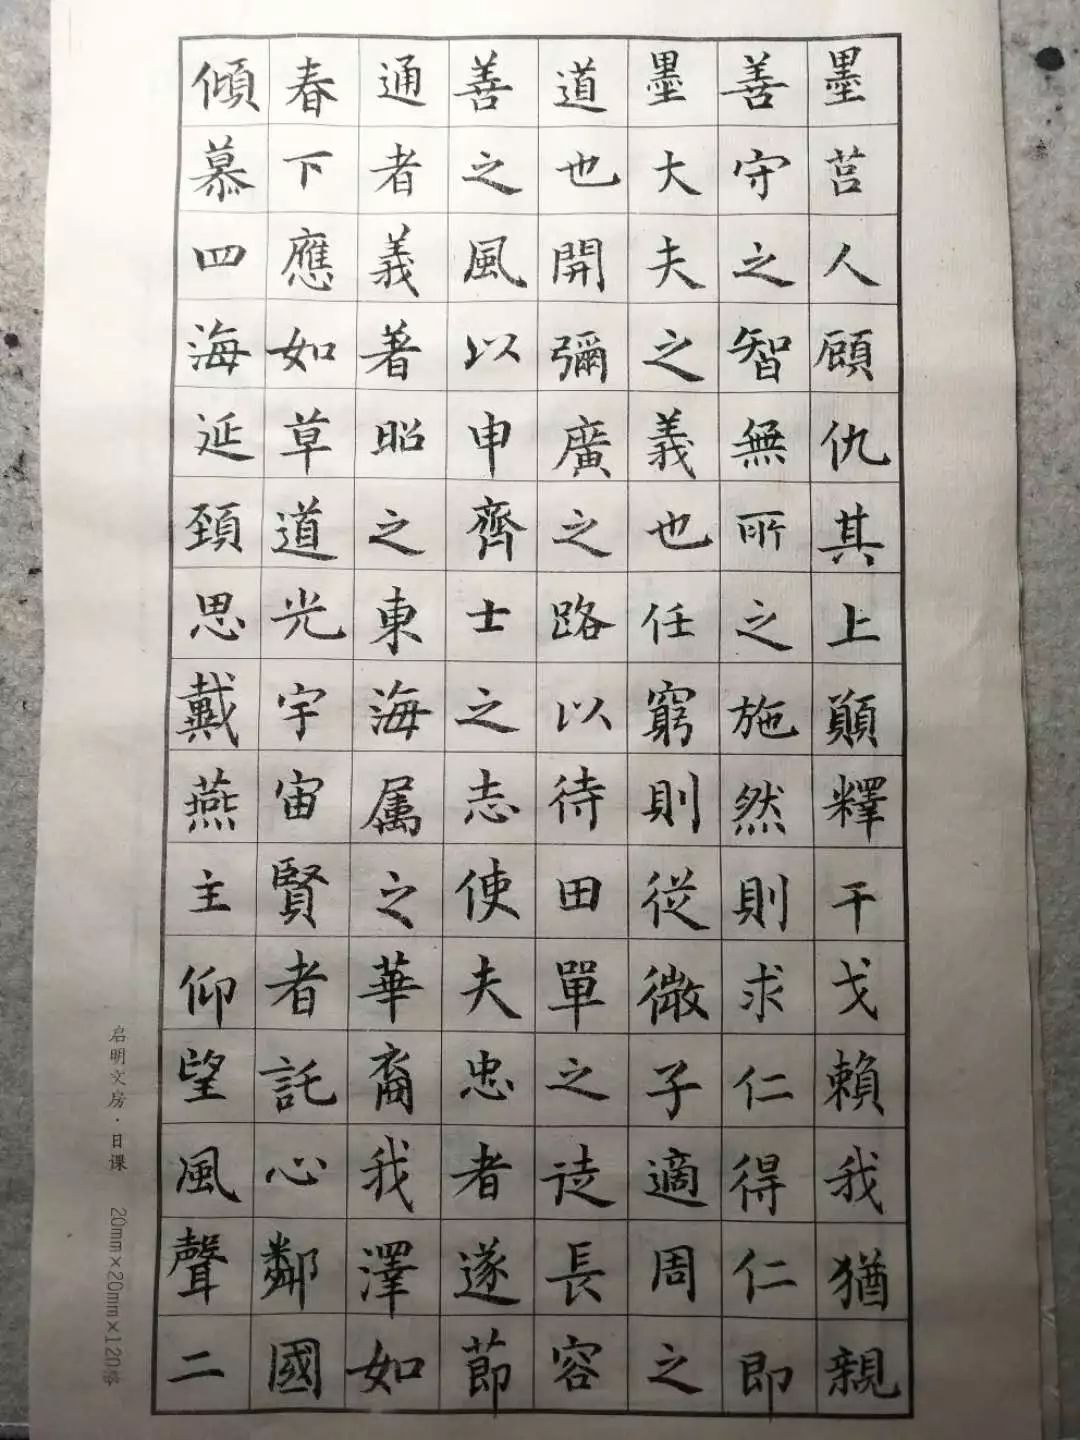 墨莒人顧仇其上顛釋干戈賴我猶親
善守之智無所之施然則求仁得仁即
墨大夫之義也任窮則從微子適周之
道也開彌廣之路以待田單之徒長容
善之風以申齊士之志使夫忠者遂節
通者義著昭之東海属之華裔我澤如
春下應如草道光宇宙賢者託心鄰國
傾慕四海延頸思戴燕主仰望風聲二
启明文房·日课 20mm×20mm×120格